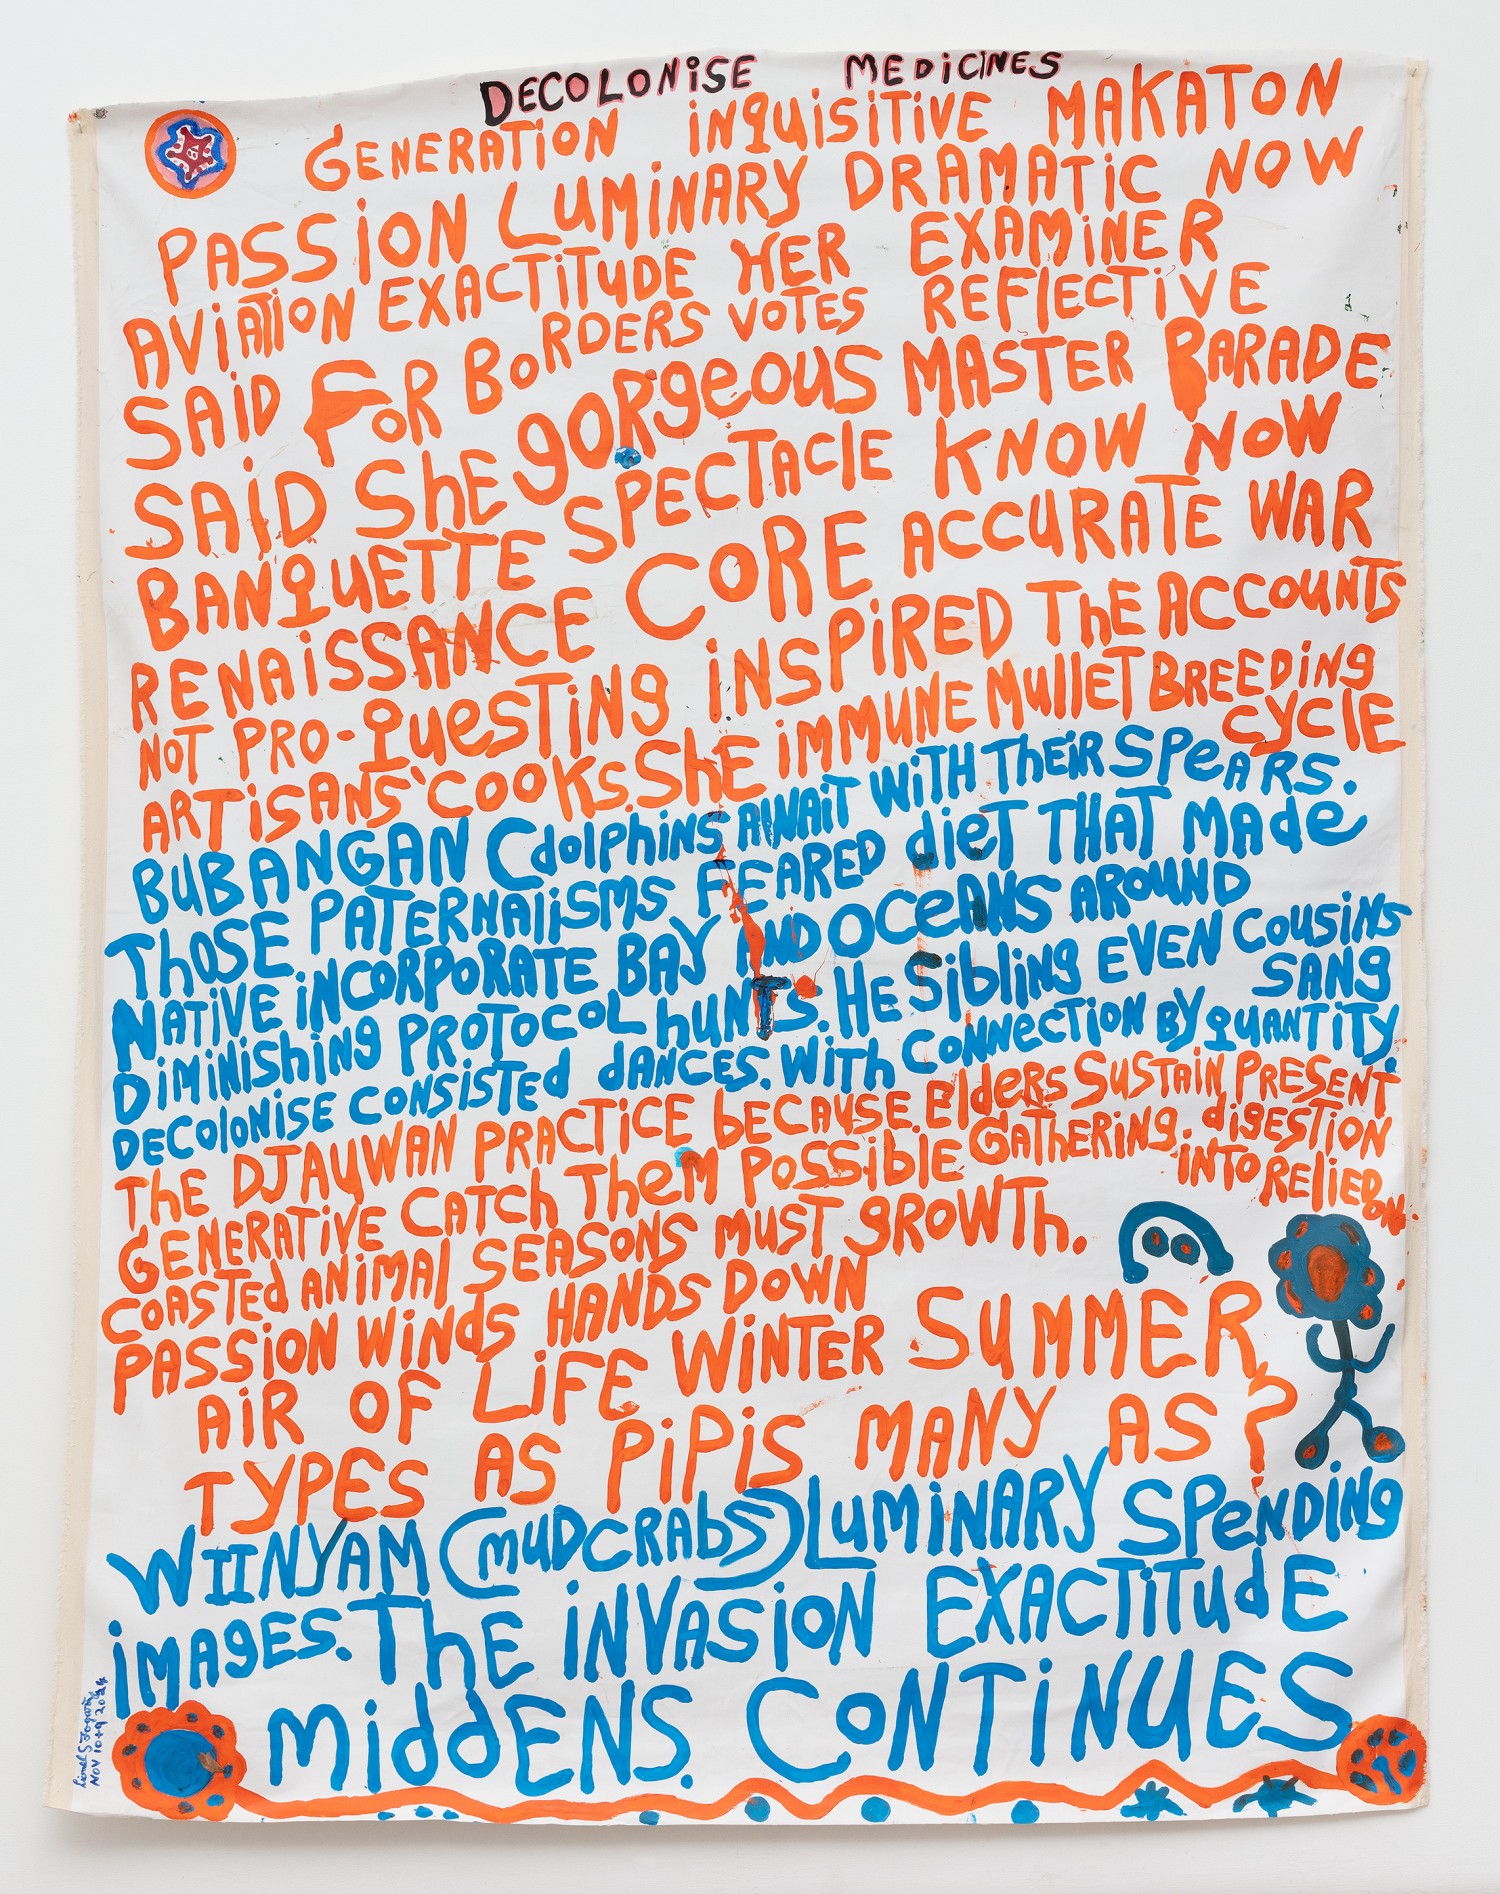 DECOLONISE MEDICINES
GENERATION INQUISITIVE MAKATON
PASSION LUMINARY DRAMATIC NOW
AVIATION EXACTITUDE HER EXAMINER
SAID FOR BORDERS VOTES REFLECTIVE
SAID SHE gORgeous MASTER PARADE
BANQUETTE SPECTACLE KNOW NOW
RENAISSANCE CORE ACCURATE WAR
NOT PRO-QUESTING INSPIRED THE ACCOUNTS
ARTISANS' COOKS. SHE IMMUNE MULLET BREEDING
CYCLE
BUBANGAN (dolphins AWAIT WITH THEIR SPEARS.
THOSE PATERNALISMS FEARED diET THAT MADE
NATIVE INCORPORATE BAY AND OCEANS AROUND
DIMINISHING PROTOCOL HUNTS. HE SIBLING EVEN COUSINS
SANG
DECOLONISE CONSISTED DANCES. WITH CONNECTION BY QUANTITY.
THE DJAUWAN PRACTICE BECAUSE. ELDERS SUSTAIN PRESENT
GENERATIVE CATCH THEM POSSIBLE GATHERING. digESTION
INTO RELIED ON.
COASTED ANIMAL SEASONS MUST GROWTH.
PASSION WINDS HANDS DOWN
AIR OF LIFE WINTER SUMMER,
TYPES AS PIPIS MANY AS?
WIINYAM (MUDCRABS) LUMINARY SPENDING
IMAGES. THE INVASION EXACTITUDE
MIDDENS. CONTINUES
Lionel G Fogarty
NOV 10+9 2024